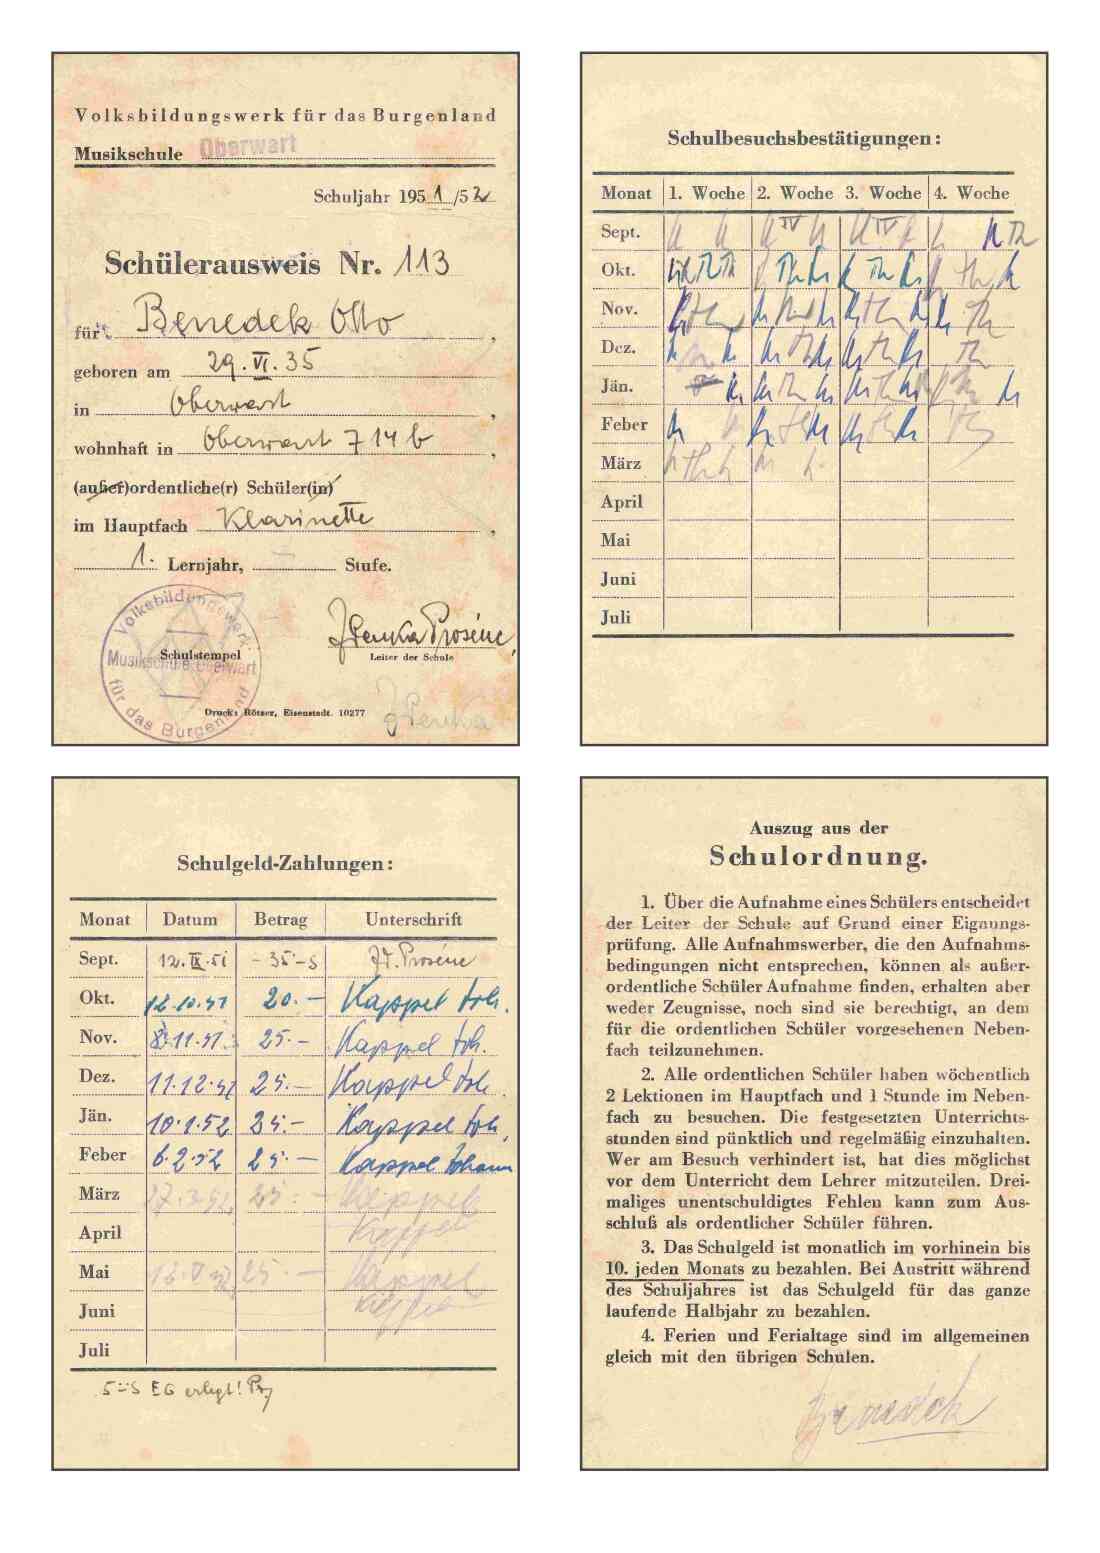 Volksbildungswerk für das Burgenland
Musikschule Oberwart
Schuljahr 1951/52
Schülerausweis Nr. 113
für Benedek Otto,
geboren am 29.VI.35
in Oberwart,
wohnhaft in Oberwart 714b,
(außer)ordentliche(r) Schüler(in)
im Hauptfach Klarinette,
1. Lernjahr, Stufe.
Volksbildungswerk
Musikschule Oberwart
für das Burgenland
Schulstempel
Leiter der Schule
Druck: Rötzer, Eisenstadt. 10277
Schulbesuchsbestätigungen:
Monat 1. Woche 2. Woche 3. Woche 4. Woche
Sept.
Okt.
Nov.
Dez.
Jän.
Feber
März
April
Mai
Juni
Juli
Schulgeld-Zahlungen:
Monat Datum Betrag Unterschrift
Sept. 12.IX.51 -35.-S
Okt. 12.10.51 20.- Kappel Joh.
Nov. 8.11.51. 25.- Kappel Joh.
Dez. 11.12.51 25.- Kappel Joh.
Jän. 10.1.52 25.- Kappel Joh.
Feber 6.2.52 25.- Kappel Johann
März 25.- Kappel
April Kappel
Mai 25.- Kappel
Juni Kappel
Juli
EG erlegt!
Auszug aus der
Schulordnung.
1. Über die Aufnahme eines Schülers entscheidet
der Leiter der Schule auf Grund einer Eignungs-
prüfung. Alle Aufnahmswerber, die den Aufnahms-
bedingungen nicht entsprechen, können als außer-
ordentliche Schüler Aufnahme finden, erhalten aber
weder Zeugnisse, noch sind sie berechtigt, an dem
für die ordentlichen Schüler vorgesehenen Neben-
fach teilzunehmen.
2. Alle ordentlichen Schüler haben wöchentlich
2 Lektionen im Hauptfach und 1 Stunde im Neben-
fach zu besuchen. Die festgesetzten Unterrichts-
stunden sind pünktlich und regelmäßig einzuhalten.
Wer am Besuch verhindert ist, hat dies möglichst
vor dem Unterricht dem Lehrer mitzuteilen. Drei-
maliges unentschuldigtes Fehlen kann zum Aus-
schluß als ordentlicher Schüler führen.
3. Das Schulgeld ist monatlich im vorhinein bis
10. jeden Monats zu bezahlen. Bei Austritt während
des Schuljahres ist das Schulgeld für das ganze
laufende Halbjahr zu bezahlen.
4. Ferien und Ferialtage sind im allgemeinen
gleich mit den übrigen Schulen.
Benedek